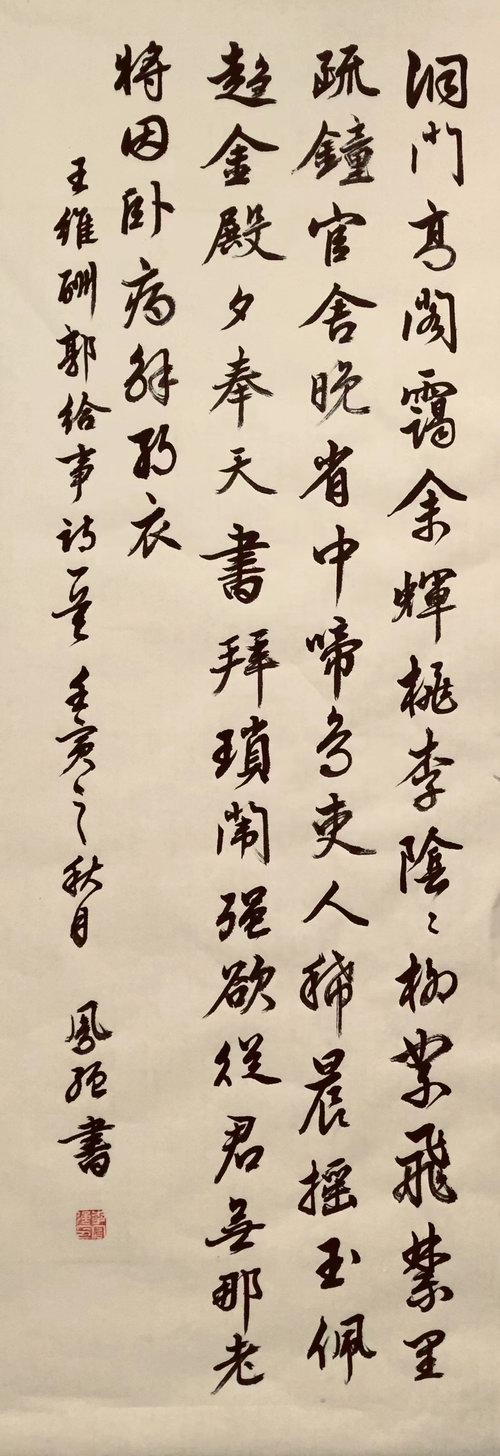 洞門高閣靄余輝桃李陰々柳絮飛禁里
疏鐘官舍晚省中啼鳥吏人稀晨摇玉佩
趨金殿夕奉天書拜瑣闈强欲從君無那老
將因卧病解朝衣
王維酬郭給事詩一首 壬寅之秋月 鳳 書